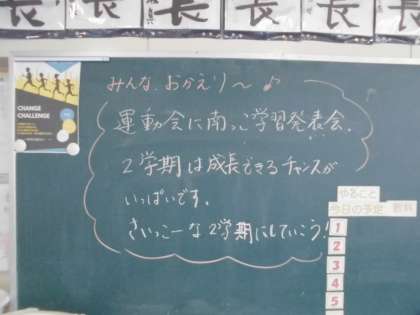 長
長
長
長
CHANGE
CHALLENGE
みんな、おかえり〜♪
運動会に南っ子学習発表会、
2学期は成長できるチャンスが
いっぱいです。
さいっこーな2学期にしていこう!
やること
今日の予定
教科
1
2
3
4
5